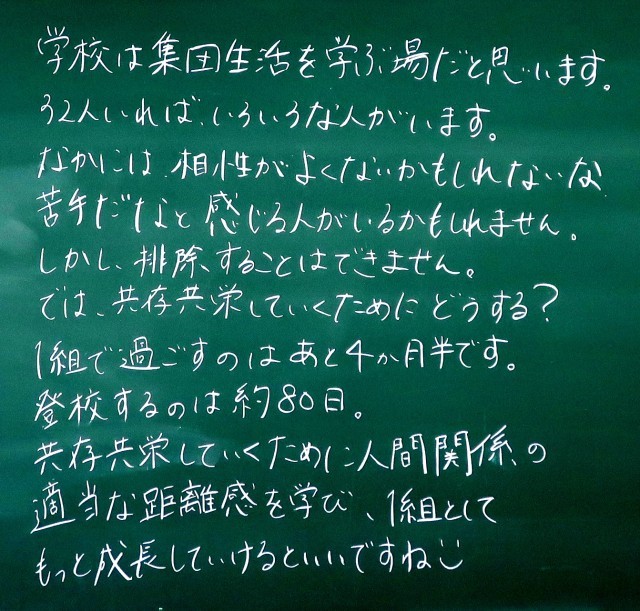 学校は集団生活を学ぶ場だと思います。
32人いれば、いろいろな人がいます。
なかには、相性がよくないかもしれないな
苦手だなと感じる人がいるかもしれません。
しかし、排除することはできません。
では、共存共栄していくためにどうする?
1組で過ごすのはあと4か月半です。
登校するのは約80日。
共存共栄していくために人間関係の
適当な距離感を学び、1組として
もっと成長していけるといいですね